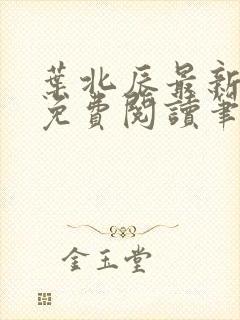 葉北辰最新
免費閱讀筆
金玉堂